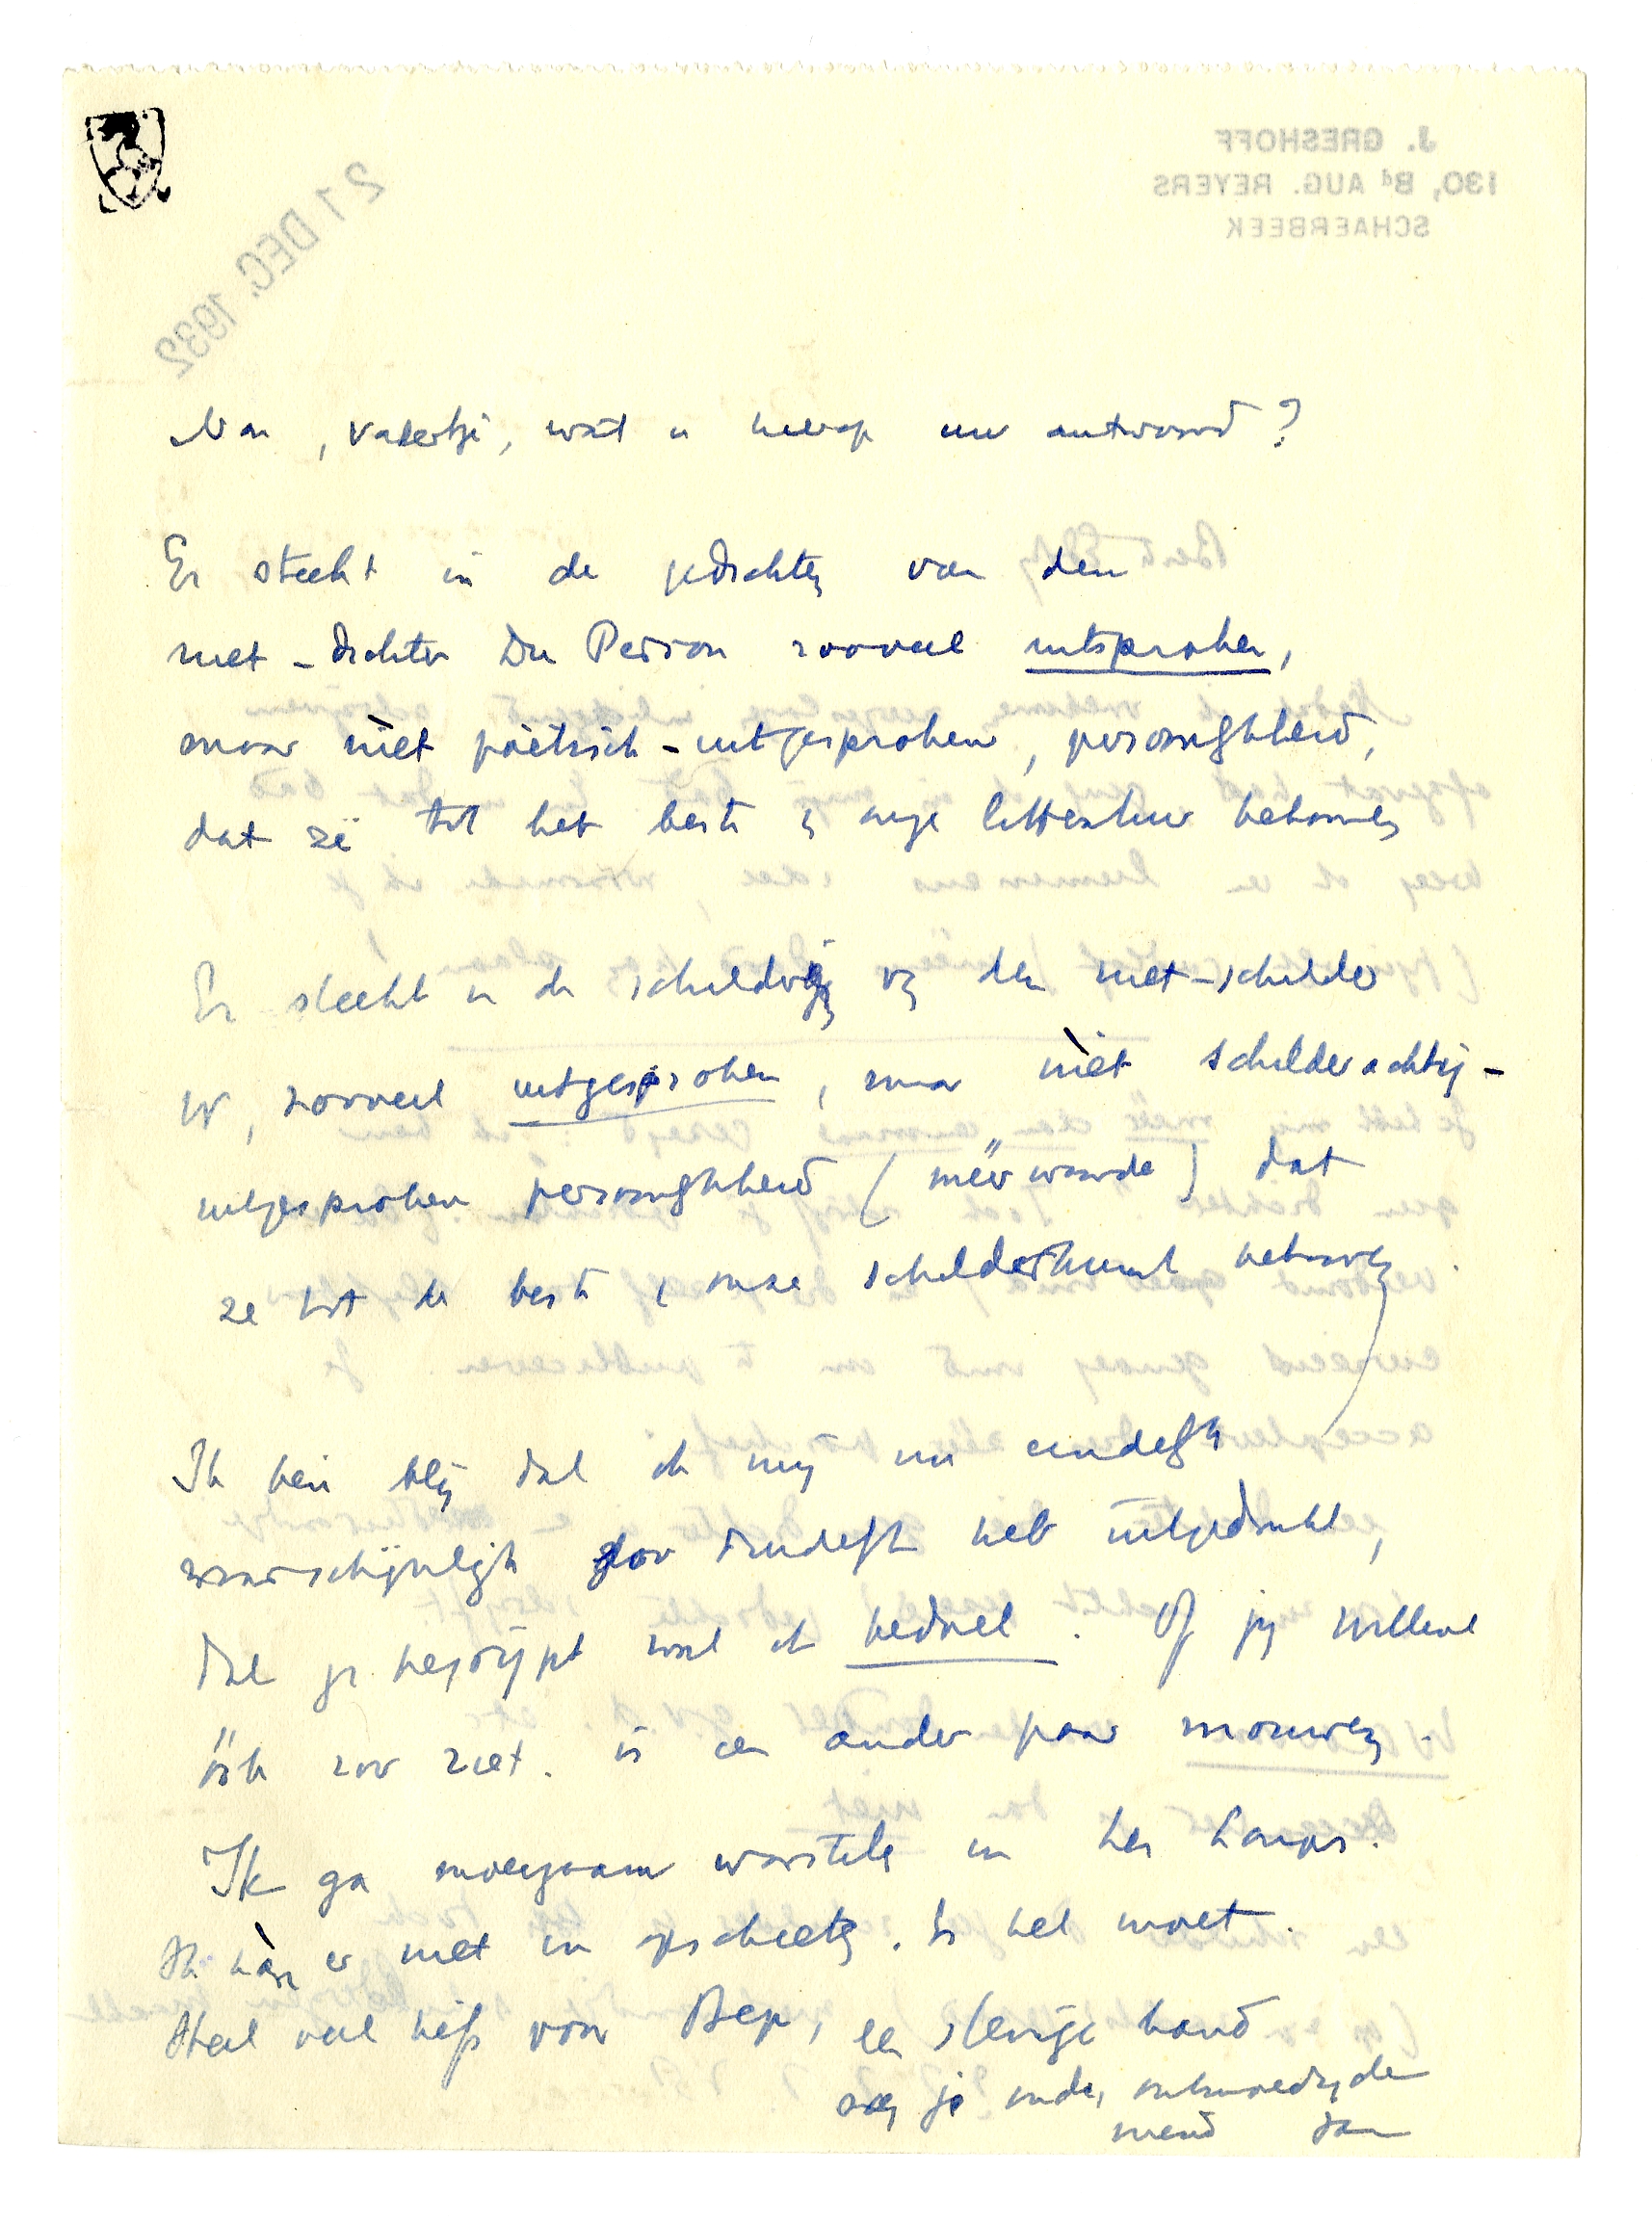 Nou, vadertje, wàt is hierop uw antwoord?
Er steekt in de gedichten van den
niet-dichter Du Perron zooveel uitsproken,
maar nìet poëtisch-uitgesproken, persoonlijkheid,
dat ze tot het beste in onze litteratuur behooren
Er steekt in de schilderijen van den niet-schilder
W, zooveel uitgesproken, maar nìet schilderachtig-
uitgesproken persoonlijkheid (méérwaarde) dat
ze tot de beste in onze schilderkunst behooren
Ik ben blij dat ik mij nu eindelijk
waarschijnlijk zoo duidelijk heb uitgedrukt,
dat je begrijpt wat ik bedoel. Of jij Willink
óók zoo ziet. is een ander paar mouwen.
Ik ga moeizaam worstelen in het
Ik kàn er niet in opschieten. En het moet.
Heel veel liefs voor Bep, een stevige hand
van je ouden
vriend Jan
J. GRESHOFF
130, Bd AUG. REYERS
SCHAERBEEK
21 DEC. 1932